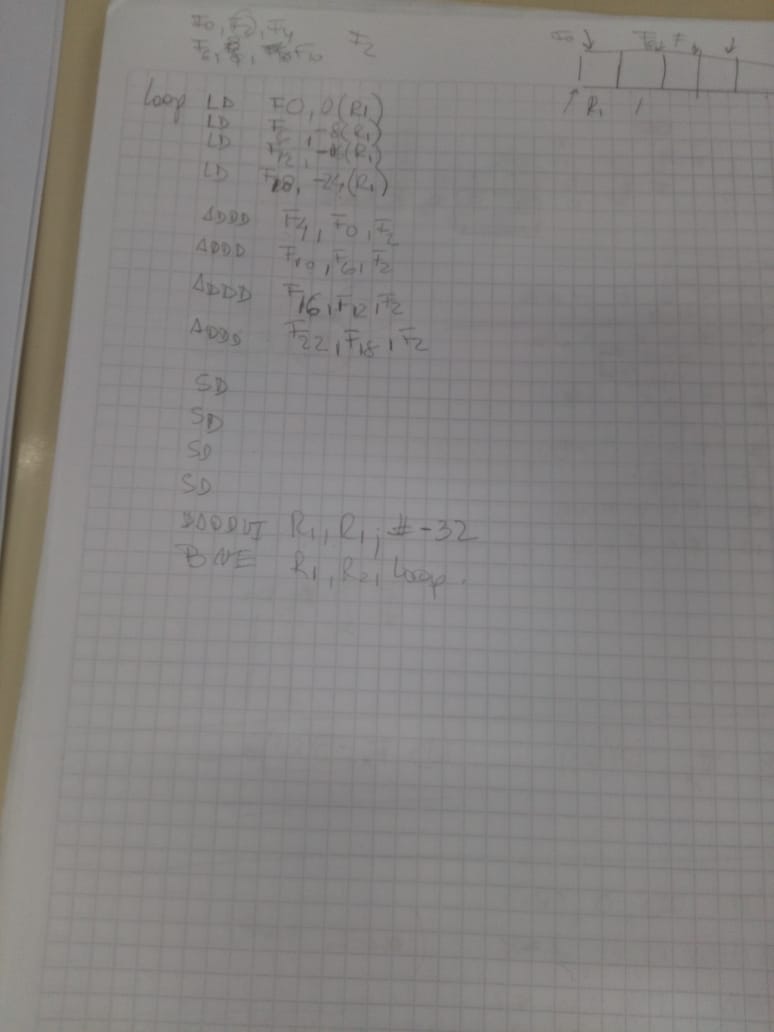 F0, F2, F4
F6, F8, F10 F2
Loop LD F0, 0(R1)
LD F6, -8(R1)
LD F12, -16(R1)
LD F18, -24(R1)
ADDD F4, F0, F2
ADDD F10, F6, F2
ADDD F16, F12, F2
ADDD F22, F18, F2
SD
SD
SD
SD
DADDUI R1, R1, #-32
BNE R1, R2, Loop.
R1